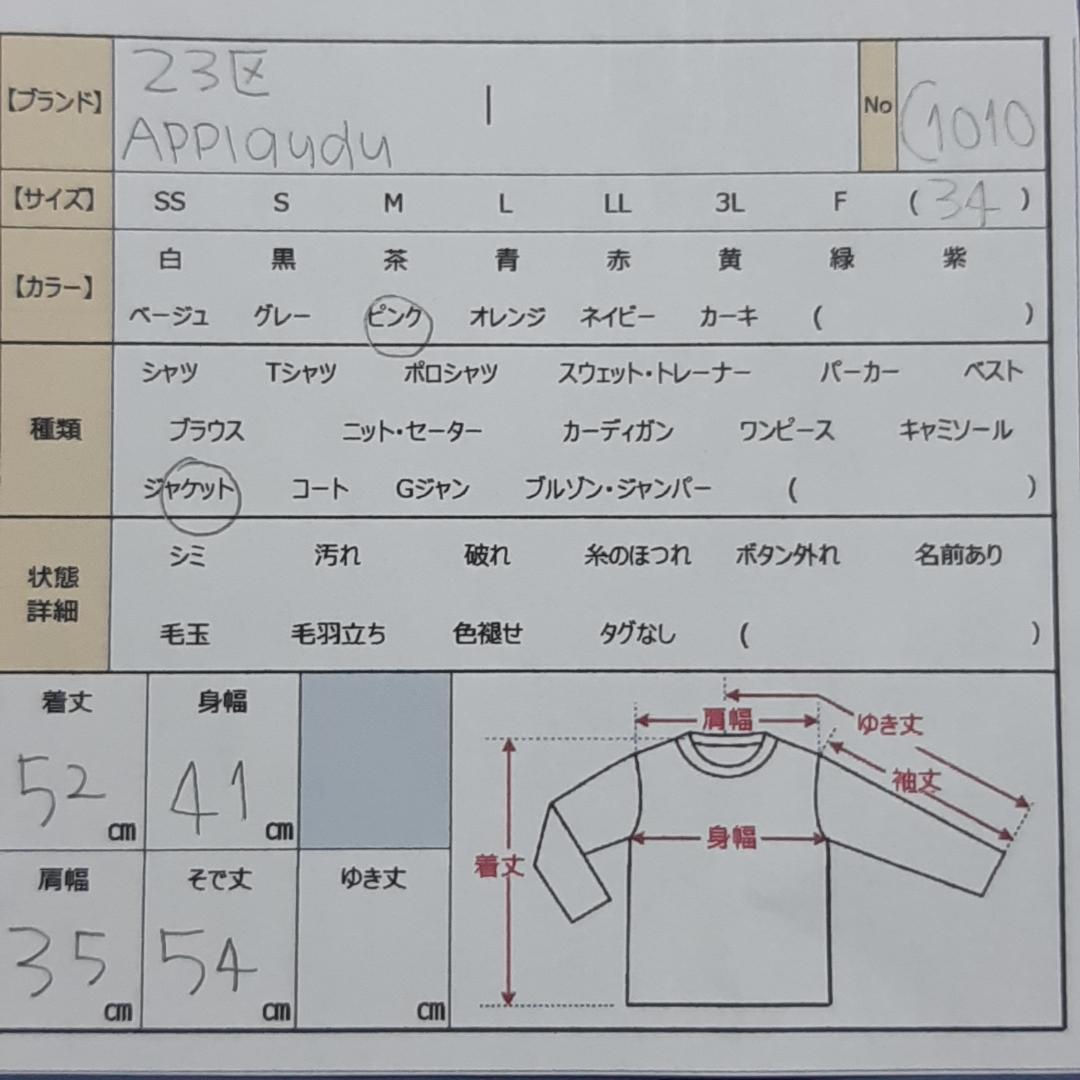 【ブランド】 23区 No (1010
APPlaudu
【サイズ】 SS S M L LL 3L F (34)
【カラー】 白 黒 茶 青 赤 黄 緑 紫
ベージュ グレー ピンク オレンジ ネイビー カーキ ( )
種類 シャツ Tシャツ ポロシャツ スウェット・トレーナー パーカー ベスト
ブラウス ニット・セーター カーディガン ワンピース キャミソール
ジャケット コート Gジャン ブルゾン・ジャンパー ( )
状態詳細 シミ 汚れ 破れ 糸のほつれ ボタン外れ 名前あり
毛玉 毛羽立ち 色褪せ タグなし ( )
着丈 身幅
52 cm 41 cm
肩幅 そで丈 ゆき丈
35 cm 54 cm cm
肩幅 ゆき丈
袖丈
身幅
着丈